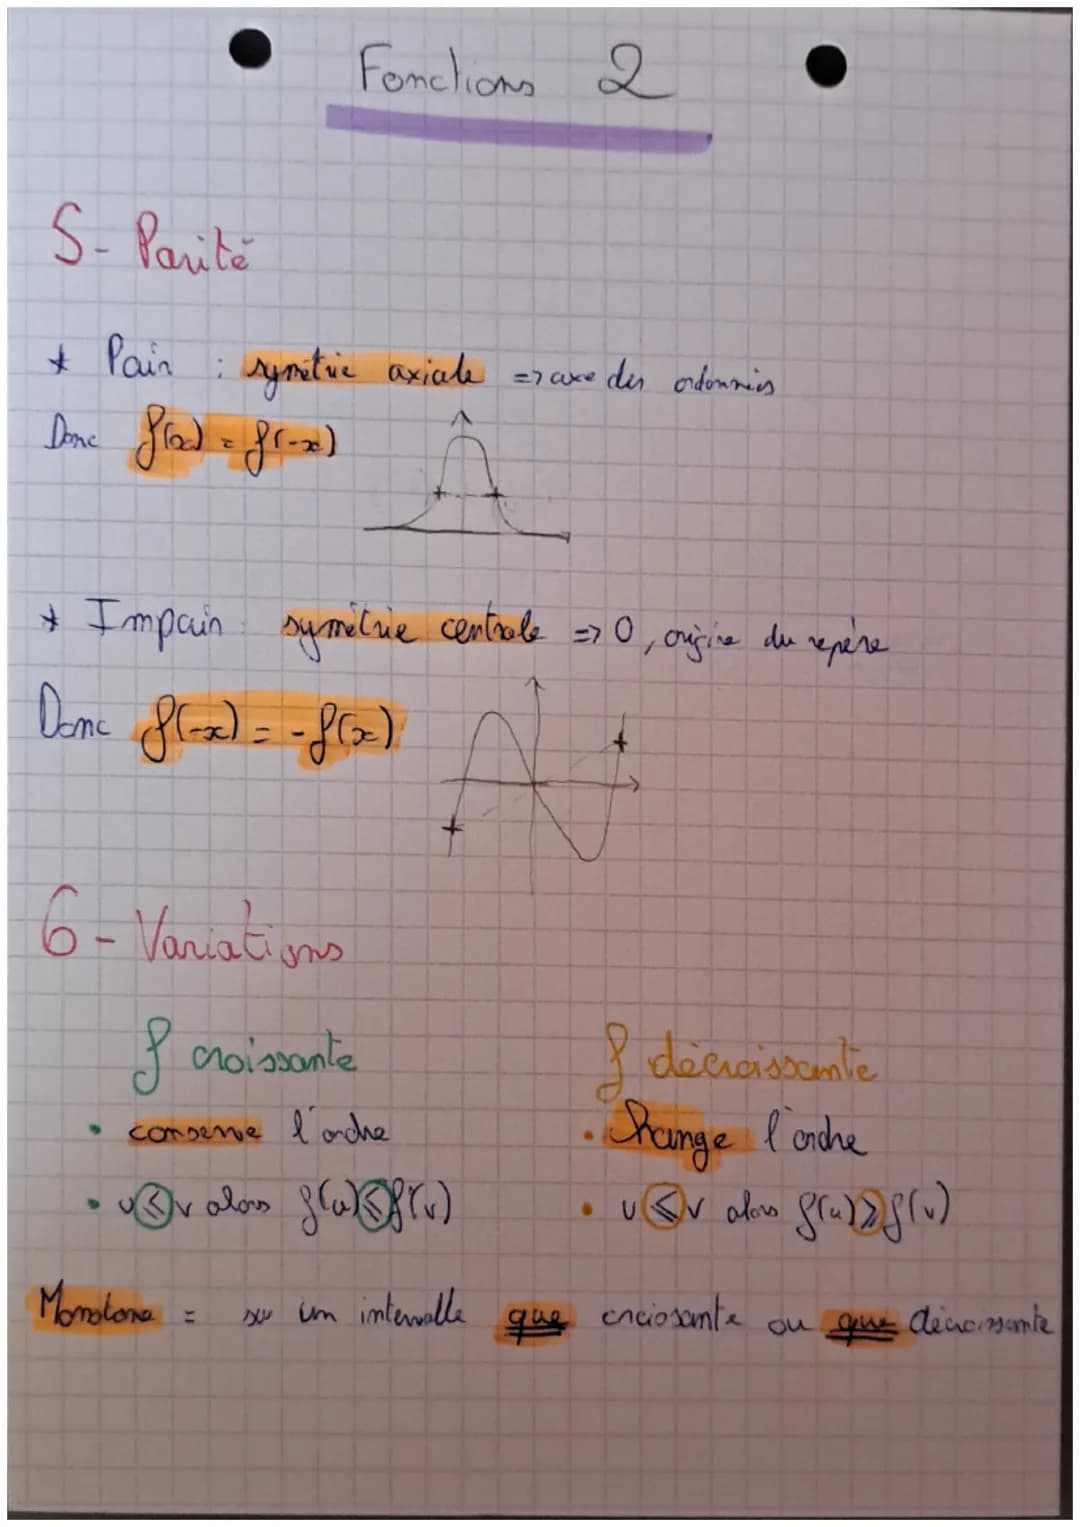 Fonctions 2
5- Parité
* Pair : symétrie axiale => axe des ordonnées
Donc f(x) = f(-x)
* Impair : symétrie centrale => O, origine du repère
Donc f(-x) = -f(x)
6- Variations
f croissante
• conserve l'ordre
• u ⩽ v alors f(u) ⩽ f(v)
f décroissante
• Change l'ordre
• u ⩽ v alors f(u) ⩾ f(v)
Monotone = sur un intervalle que croissante ou que décroissante